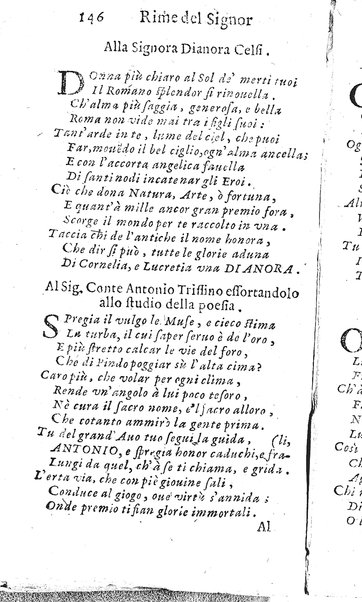 146 Rime del Signor
Alla Signora Dianora Celsi.
DOnna più chiaro al Sol de' merti tuoi
Il Romano splendor si rinouella.
Ch'alma più saggia, generosa, e bella
Roma non vide mai tra i figli suoi:
Tant'arde in te, lume del ciel, che puoi
Far, mouẽdo il bel ciglio, ogn'alma ancella;
E con l'accorta angelica fauella
Di santi nodi incatenar gli Eroi.
Ciò che dona Natura, Arte, ò fortuna,
E quant'à mille ancor gran premio fora,
Scorge il mondo per te raccolto in vna.
Taccia chi de l'antiche il nome honora,
Che dir si può, tutte le glorie aduna
Di Cornelia, e Lucretia vna DIANORA.
Al Sig. Conte Antonio Trissino essortandolo
allo studio della poesia.
SPregia il vulgo le Muse, e cieco stima
La turba, il cui saper seruo è de l'oro,
E più stretto calcar le vie del foro,
Che di Pindo poggiar sù l'alta cima?
Caro più, che volar per ogni clima,
Rende vn'angolo à lui poco tesoro,
Nè cura il sacro nome, e'l sacro alloro,
Che cotanto ammirò la gente prima.
Tu del grand'Auo tuo segui la guida, (li,
ANTONIO, e spregia honor caduchi, e fra-
Lungi da quel, ch'à se ti chiama, e grida.
L'erta via, che con piè giouine sali,
Conduce al giogo, oue virtù s'annida:
Onde premio tisian glorie immortali.
Al